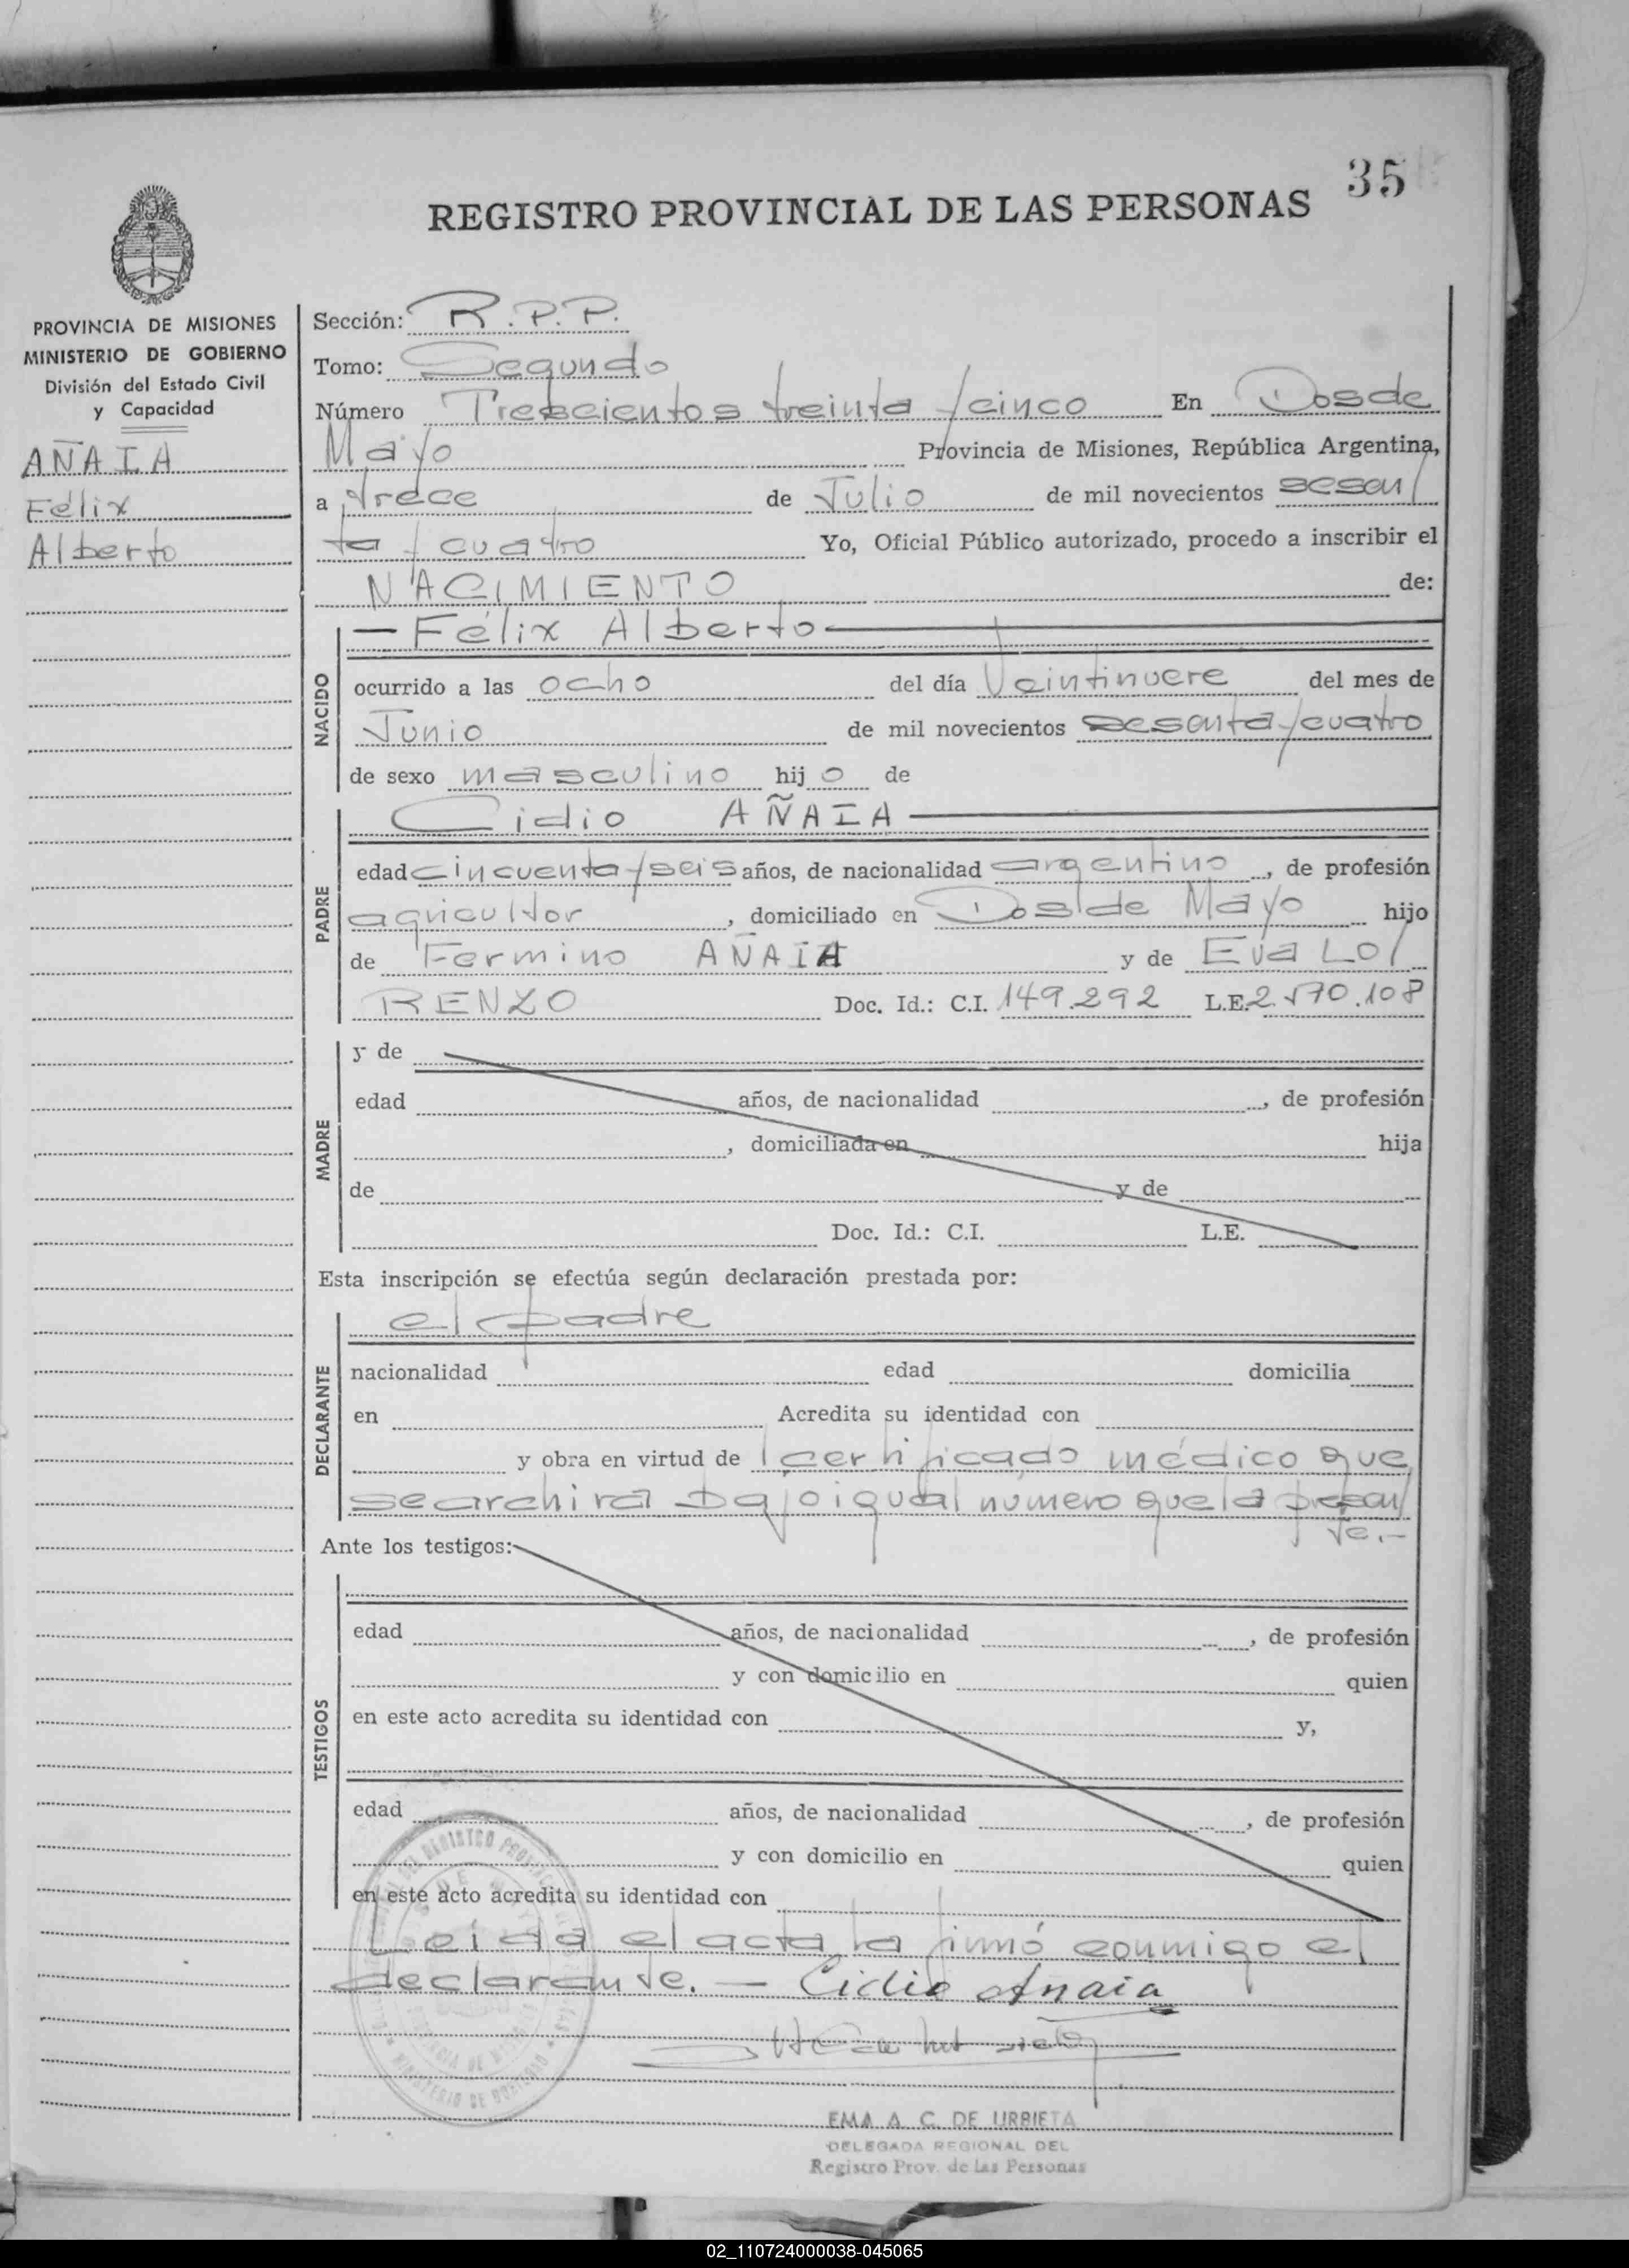 35
REGISTRO PROVINCIAL DE LAS PERSONAS
PROVINCIA DE MISIONES
MINISTERIO DE GOBIERNO
División del Estado Civil
y Capacidad
AÑAIA
Félix
Alberto
Sección: R.P.P.
Tomo: Segundo
Número Trescientos treinta / cinco En Dos de
Mayo Provincia de Misiones, República Argentina,
a trece de Julio de mil novecientos sesen/
ta / cuatro Yo, Oficial Público autorizado, procedo a inscribir el
NACIMIENTO de:
NACIDO
— Félix Alberto —
ocurrido a las ocho del día Veintinueve del mes de
Junio de mil novecientos sesenta / cuatro
de sexo masculino hijo de
PADRE
Cidio AÑAIA
edad cincuenta / seis años, de nacionalidad argentino, de profesión
agricultor, domiciliado en Dos de Mayo hijo
de Fermino AÑAIA y de Eva LO/
RENZO Doc. Id.: C.I. 149.292 L.E. 2.570.108
MADRE
y de
edad años, de nacionalidad , de profesión
, domiciliada en hija
de y de
Doc. Id.: C.I. L.E.
Esta inscripción se efectúa según declaración prestada por:
DECLARANTE
el padre
nacionalidad edad domicilia
en Acredita su identidad con
y obra en virtud de 1 certificado médico que
se archiva bajo igual número que la presen/
te.-
Ante los testigos:
TESTIGOS
edad años, de nacionalidad , de profesión
y con domicilio en quien
en este acto acredita su identidad con y,
edad años, de nacionalidad , de profesión
y con domicilio en quien
en este acto acredita su identidad con
Leída el acta, la firmó conmigo el
declarante. — Cidio Anaia
EMA A. C. DE URBIETA
DELEGADA REGIONAL DEL
Registro Prov. de las Personas
02_110724000038-045065